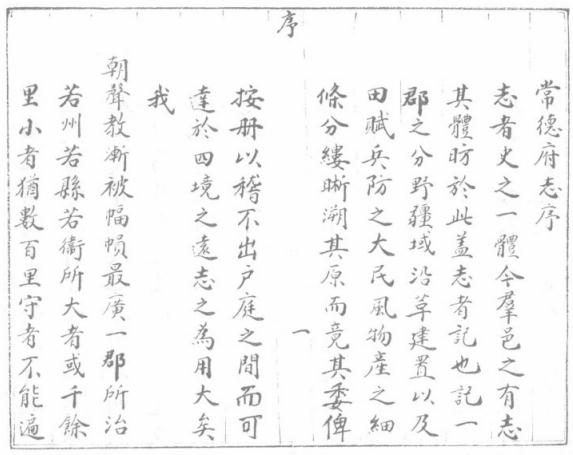 常德府志序
志者史之一體今羣邑之有志
其體昉於此蓋志者記也記一
郡之分野疆域沿革建置以及
田賦兵防之大民風物產之細
條分縷晰溯其原而竟其委俾
序
一
按册以稽不出户庭之間而可
達於四境之遠志之為用大矣
我
朝聲教漸被幅幀最廣一郡所治
若州若縣若衛所大者或千餘
里小者猶數百里守者不能遍